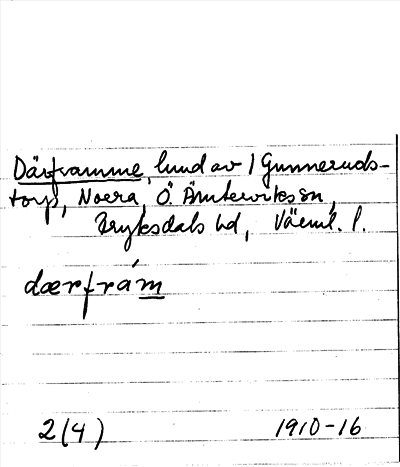 Därframme, lund av 1 Gunneruds-
torp, Noera, Ö. Ämterviks sn,
Fryksdals hd, Värml. l.
dærfrám
2(4) 1910-16